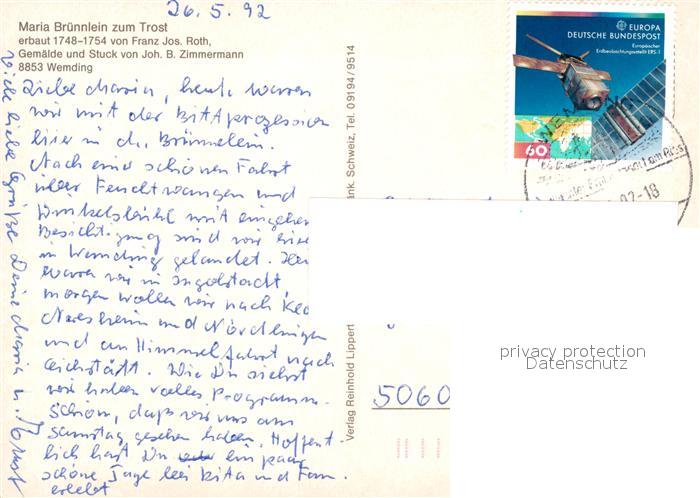 26. 5. 92
Maria Brünnlein zum Trost
erbaut 1748–1754 von Franz Jos. Roth,
Gemälde und Stuck von Joh. B. Zimmermann
8853 Wemding
Liebe Maria, heute waren
wir mit der Bittprozession
hier in d. Brünnelein.
Nach einer schönen Fahrt
über Feuchtwangen und
Dinkelsbühl mit eingehen
Besichtigung sind wir hier
in Wemding gelandet.
waren wir in Ingolstadt,
morgen wollen wir nach
Neresheim und Nördlingen
und an Himmelfahrt nach
Eichstätt. Wie Du siehst
wir haben volles Programm.
Schön, daß wir uns am
Samstag gesehen haben. Hoffent-
lich hast Du ein paar
schöne Tage bei Rita und Fam.
erlebt
Viele liebe Grüße Deine Maria u.
Verlag Reinhold Lippert
änk. Schweiz, Tel. 09194/9514
EUROPA
DEUTSCHE BUNDESPOST
Europäischer
Erdbeobachtungssatellit ERS-1
60
WEMDING
am Ries
92-18
5060
privacy protection
Datenschutz